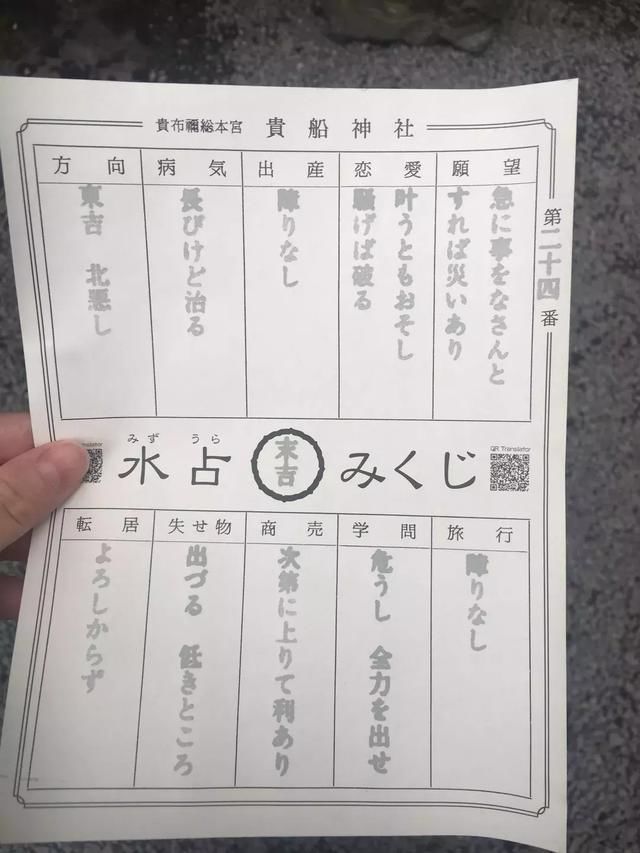 貴布禰総本宮 貴船神社
第二十四番
願望
急に事をなさんと
すれば災いあり
恋愛
叶うともおそし
騒げば破る
出産
障りなし
病気
長びけど治る
方向
東吉 北悪し
QR Translator
みずうら
水占みくじ
末吉
QR Translator
旅行
障りなし
学問
危うし 全力を出せ
商売
次第に上りて利あり
失せ物
出づる 低きところ
転居
よろしからず